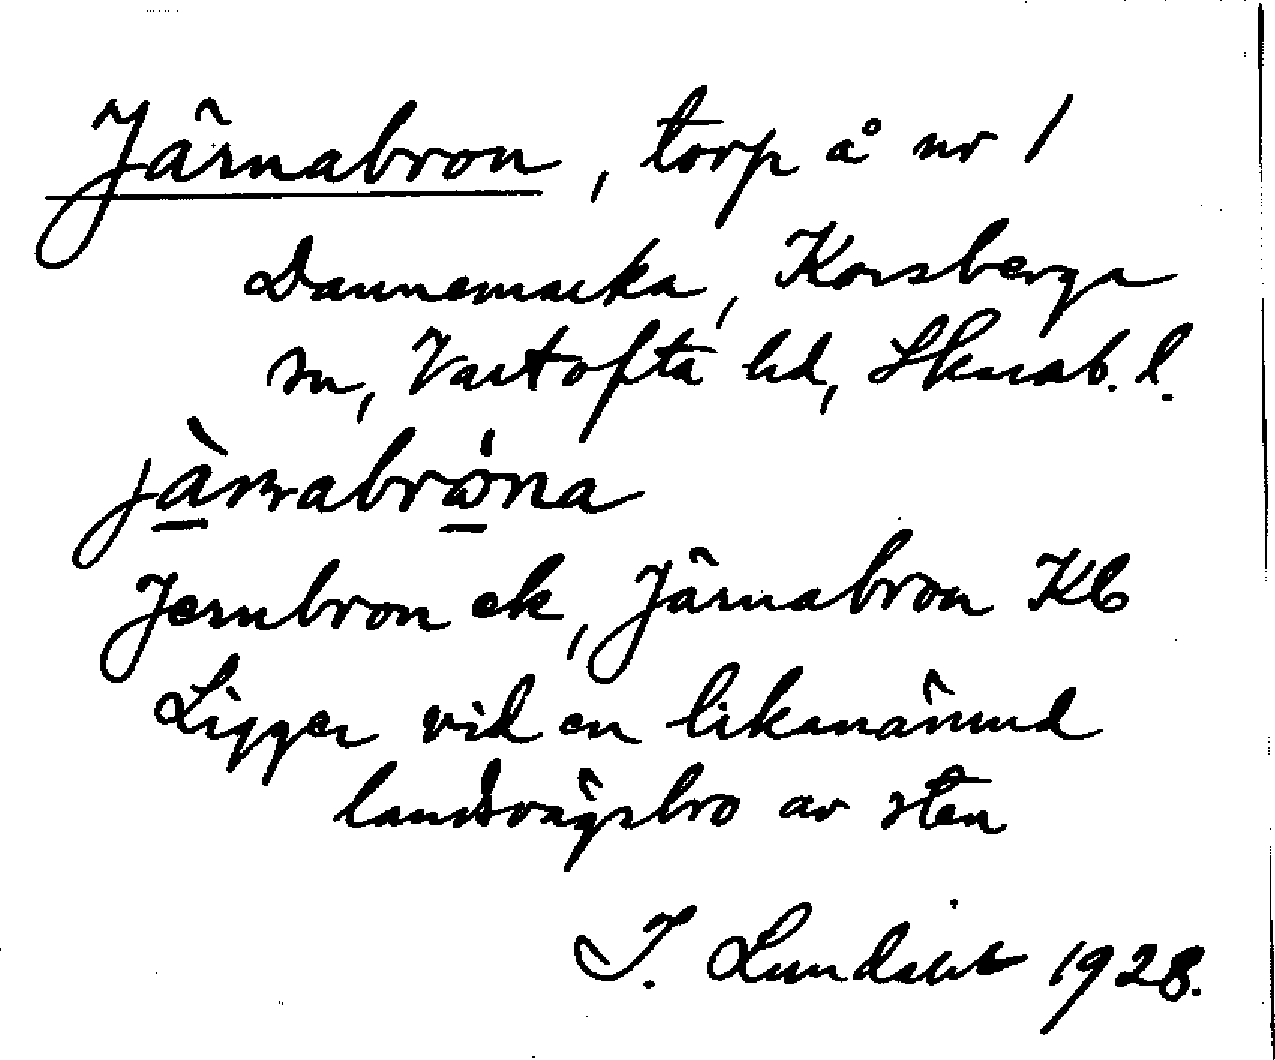 Järnabron, torp å nr 1
Dannemarka, Korsberga
sn, Vartofta hd, Skarab. l.
jä̀rnabrω̇na
Jernbron ek, Järnabron Kb
Ligger vid en likanämnd
landsvägsbro av sten
I. Lundahl 1928.